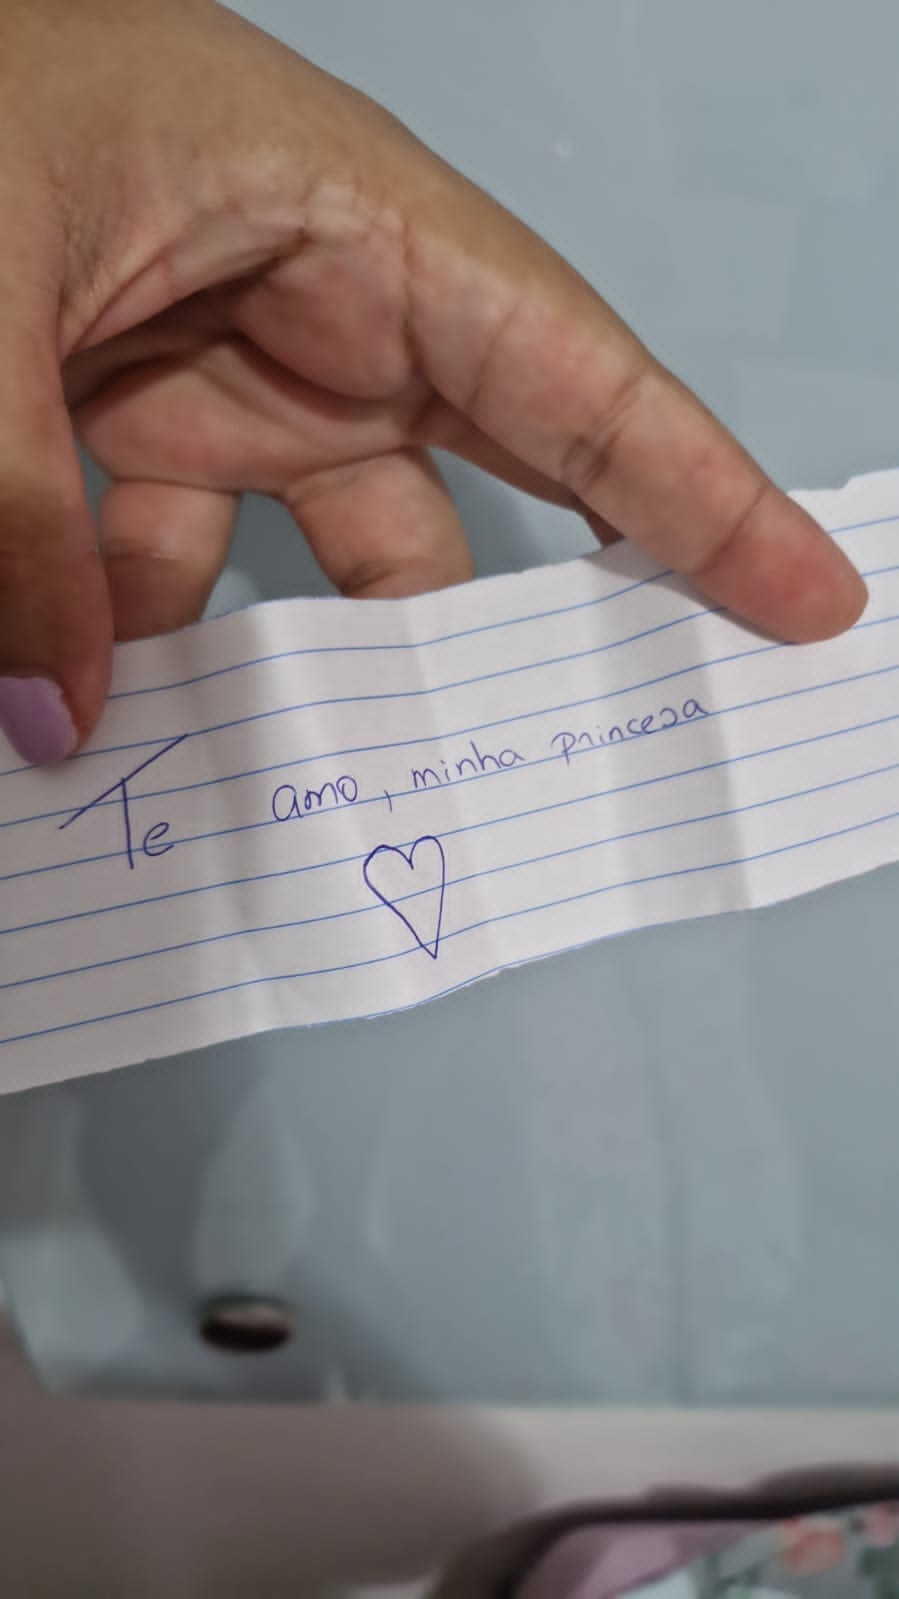 Te amo, minha princesa